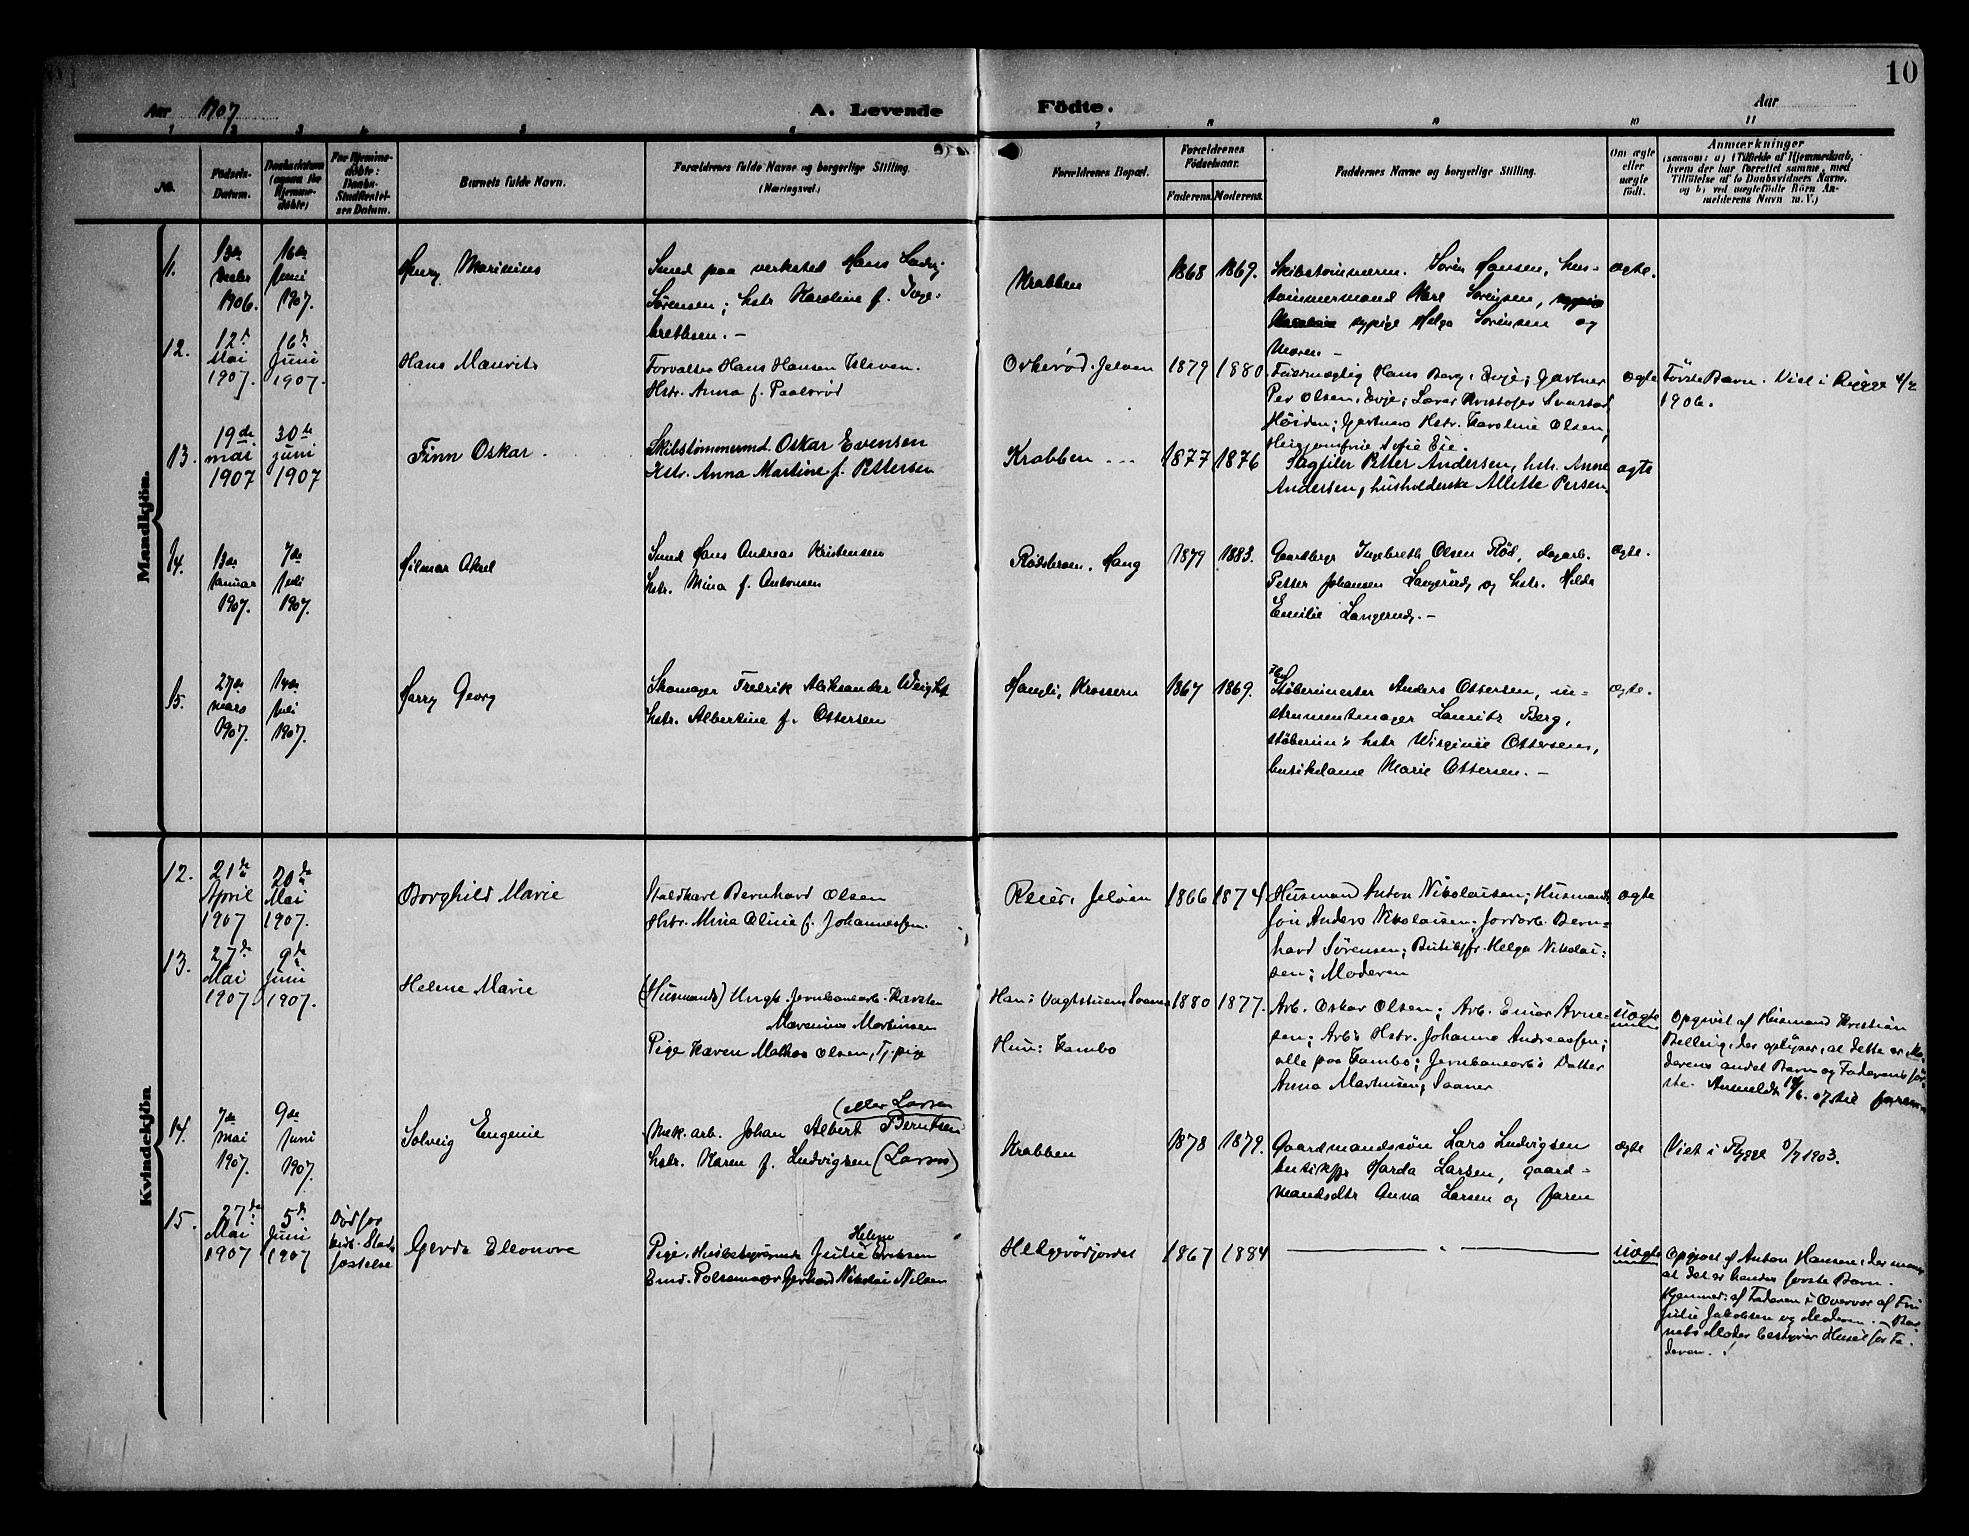 10
Aar 1907
A. Levende Födte.
Aar
1 2 3 4 5 6 7 8 9 10 11
No.
Fødsels-Datum.
Daabsdatum (ogsaa for Hjemme-døbte)
For Hjemme-døbte: Daabs-Stadfæstel-sen Datum.
Barnets fulde Navn.
Forældrenes fulde Navne og borgerlige Stilling.
(Næringsvei.)
Forældrenes Bopæl.
Forældrenes Fødselsaar.
Faderens. Moderens.
Faddernes Navne og borgerlige Stilling.
Om ægte eller uægte født.
Anmærkninger
(saasom: a) i Tilfælde af Hjemmedaab,
hvem der har forrettet samme, med
Tilføielse af to Daabsvidners Navne,
og b) ved uægtefødte Börn An-
melderens Navn m. V.)
Mandkjön.
11.
13de
1906.
16de
Juni
1907.
Henry Marinius
Smed paa verksted Hans Ludv.
Sørensen; hstr. Karoline f. Inge-
brethsen. -
Krabben
1868 1869.
Skibstømmerm. Søren Hansen, hus-
tømmermand Karl Sørensen,
sypige Helga Sørensen og
Moren -
ægte.
12.
12te
Mai
1907
16de
Juni
1907.
Hans Maurits
Forvalter Hans Hansen Kleven.
Hstr. Anna f. Paalsrød
Orkerød. Jeløen
1879 1880
Fuldmægtig Hans Berg, Evje; Gartner
Per Olsen, Evje; Lærer Kristofer Svarstad
Høiden; Gartners Hstr. Karoline Olsen,
Husjomfru Sofie Eie.
ægte
Første Barn. Viet i Rygge
1906.
13.
19de
mai
1907
30te
juni
1907
Finn Oskar.
Skibstømmermd. Oskar Evensen
Hstr. Anna Martine f. Pettersen
Krabben
1877 1876
Sagfiler Petter Andersen, hstr. Anne
Andersen, husholderske Allette Persen
ægte
14.
13de
Januar
1907.
7de
Juli
1907.
Hilmar Aksel
Smed Hans Andreas Kristensen
hstr. Mina f. Antonsen
Rødsbroen, Haug
1879 1883.
Gaardbrgr Ingebreth Olsen Rød, dagarb.
Petter Johansen Langerud, og hstr. Hilda
Emilie Langerud. -
ægte.
15.
27de
mars
1907.
14de
Juli
1907.
Harry Georg
Skomager Fredrik Aleksander Weight
hstr. Albertine f. Ottersen
Haugli, Krossern
1867 1869.
Støberimester Anders Ottersen, in-
strumentmager Lauritz Berg,
støberim's hstr Wirginie Ottersen,
butikdame Marie Ottersen. -
ægte.
Kvindekjön
12.
21de
April
1907
20de
Mai
1907.
Borghild Marie
Staldkarl Bernhard Olsen
Hstr. Mina Oline f. Johannessen.
Reier. Jeløen
1866 1874
Husmand Anton Nikolaisen; Husmands
søn Anders Nikolaisen; Jordarb. Bern-
hard Sørensen; Butikjfr. Helga Nikolai-
sen; Moderen
ægte
13.
27de
Mai
1907
9de
Juni
1907.
Helene Marie
(Husmands) Ungk. Jernbanearb. Karsten
Marenius Martinsen
Pige Karen Mathea Olsen, Tj. pige
Han: Vagtstuen Saaner
Hun: Kambo
1880 1877.
Arb. Oskar Olsen; Arb. Einar Arne-
sen; Arb's Hstr. Johanne Andreassen;
alle paa Kambo; Jernbanearb's Datter
Anna Martinsen, Saaner
uægte
Opgivet af Husmand Kristian
Belling, der oplyser, at dette er Mo-
derens andet Barn og Faderens før-
ste. Anmeldt 10/6. 07 til
14.
7de
mai
1907.
9de
Juni
1907.
Solveig Eugenie
(eller Larsen
Mek. arb. Johan Albert Berntsen
hstr. Karen f. Ludvigsen (Larsen)
Krabben
1878 1879.
Gaardmandssøn Lars Ludvigsen
butikjfr Harda Larsen, gaard-
mandsdtr Anna Larsen og faren
ægte
Viet i Rygge 1903.
15.
27de
Mai
1907
5te
Juni
1907
Død før
kirk. Stad-
fæstelse
Gerda Eleonore
Helene
Pige, Husbestyrerinde Julie Eriksen
Emd. Pølsemager Gerhard Nikolai Nilsen
Helgerødjordet
1867 1884
uægte
Opgivet af Anton Hansen, der mener
at det er hendes første Barn.
Hjemmed. af Faderen i Overvær af Fru
Julie Jakobsen og Moderen. - Bar-
nets Moder bestyrer Huset for Fa-
deren.